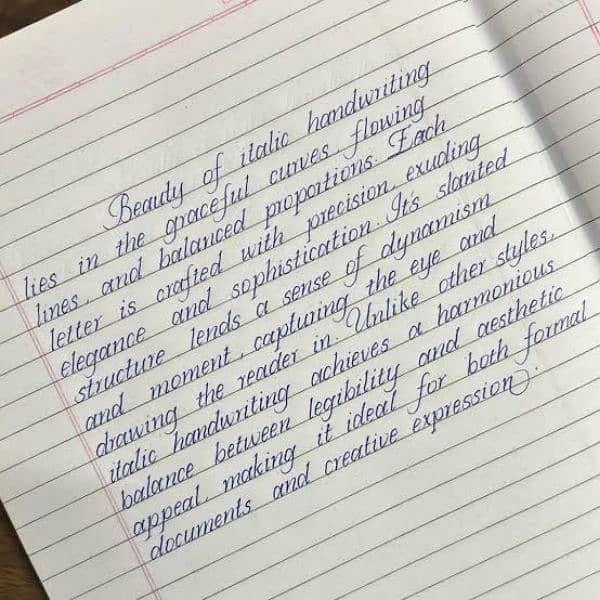 Beauty of italic handwriting
lies in the graceful curves, flowing
lines, and balanced proportions. Each
letter is crafted with precision, exuding
elegance and sophistication. It's slanted
structure lends a sense of dynamism
and moment, capturing the eye and
drawing the reader in. Unlike other styles,
italic handwriting achieves a harmonious
balance between legibility and aesthetic
appeal, making it ideal for both formal
documents and creative expression.